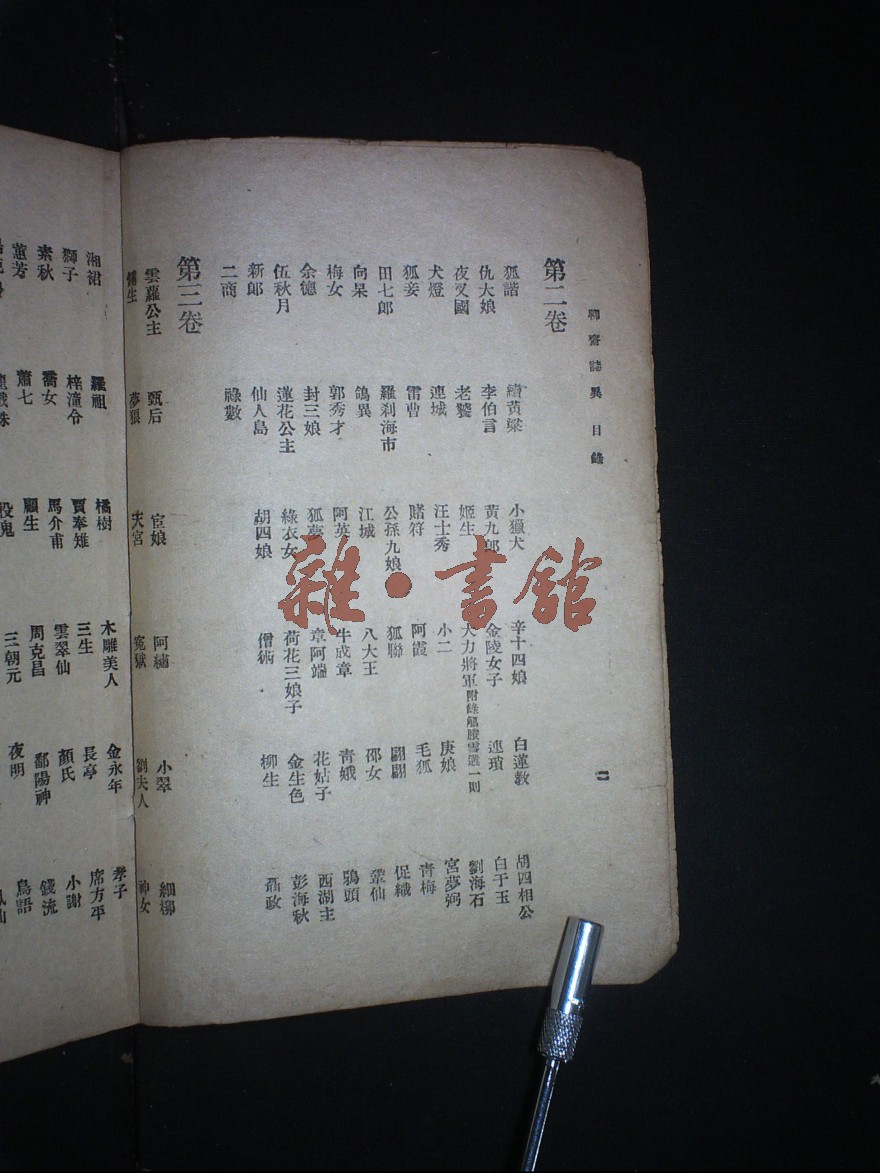 聊齋誌異 目錄 二
第二卷
狐諧 續黃粱 小獵犬 辛十四娘 白蓮教 胡四相公
仇大娘 李伯言 黃九郎 金陵女子 連瑣 白于玉
夜叉國 老饕 姬生 大力將軍附錄觚賸雪遘一則 劉海石
犬燈 連城 汪士秀 小二 庚娘 宮夢弼
狐妾 雷曹 賭符 阿霞 毛狐 青梅
田七郎 羅刹海市 公孫九娘 狐聯 翩翩 促織
向杲 鴿異 江城 八大王 邵女 鞏仙
梅女 郭秀才 阿英 牛成章 青娥 鴉頭
余德 封三娘 狐夢 章阿端 花姑子 西湖主
伍秋月 蓮花公主 綠衣女 荷花三娘子 金生色 彭海秋
新郎 仙人島 胡四娘 僧術 柳生 聶政
二商 祿數
第三卷
雲蘿公主 甄后 宦娘 阿繡 小翠 細柳
生 夢狼 天宮 冤獄 劉夫人 神女
湘裙 羅祖 橘樹 木雕美人 金永年 孝子
獅子 梓潼令 賈奉雉 三生 長亭 席方平
素秋 喬女 馬介甫 雲翠仙 顏氏 小謝
蕙芳 蕭七 顧生 周克昌 鄱陽神 錢流
三朝元 夜明 鳥語
雜·書館